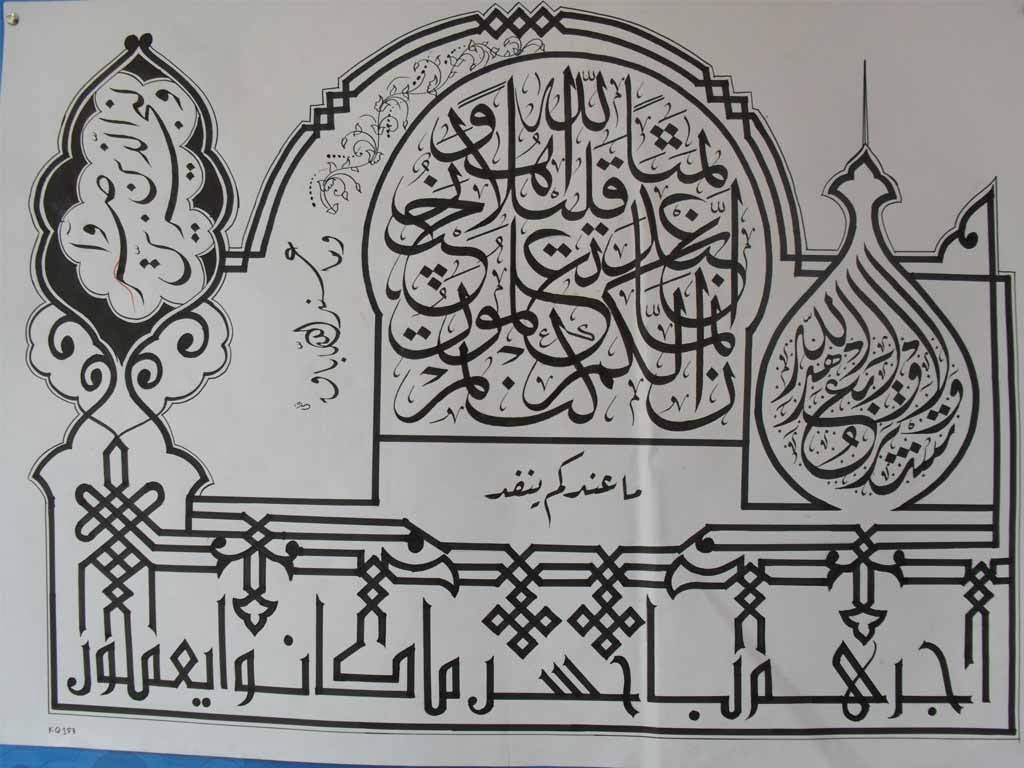 ولا تشتروا بعهد الله
ثمنا قليلا إنما عند الله هو خير لكم إن كنتم تعلمون
ما عندكم ينفد
وما عند الله باق
ولنجزين الذين صبروا
أجرهم بأحسن ما كانوا يعملون
KQ153